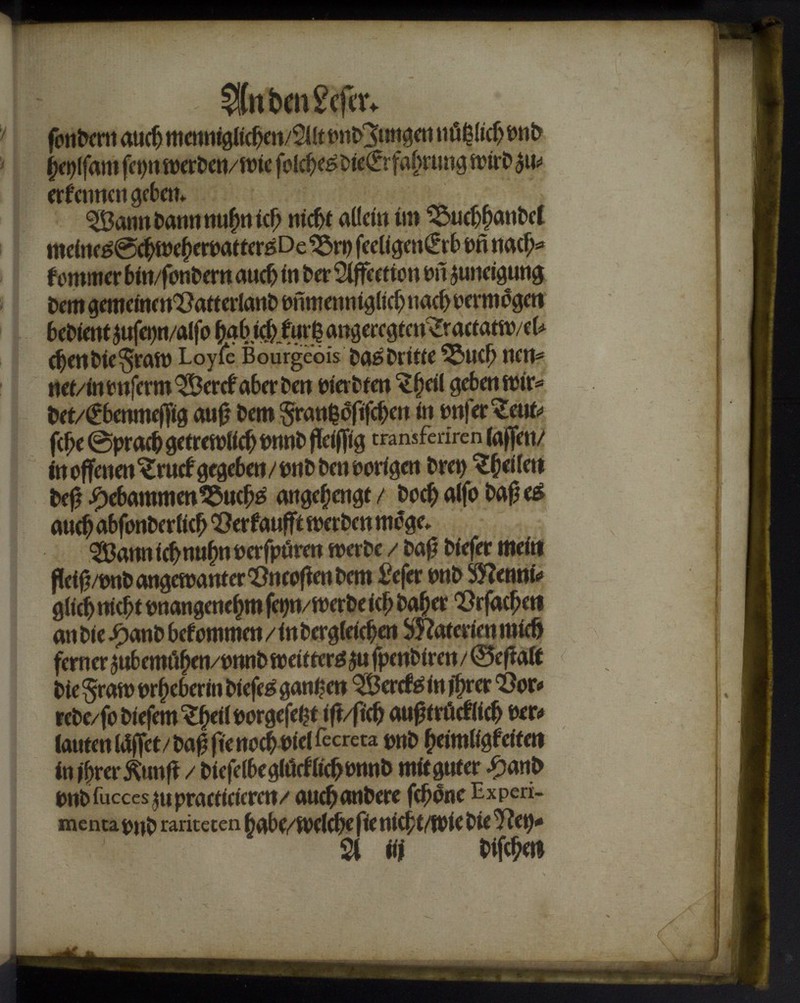 An den Leser.
sondern auch menniglichen/Alt vnd Jungen nützlich vnd
heylsam seyn werden/wie solches die Erfahrung wird zu⸗
erkennen geben.
Wann dann nuhn ich nicht allein im Buchhandel
meines Schwehervatters De Bry seeligen Erb vñ nach⸗
kommer bin/sondern auch in der Affection vñ zuneigung
dem gemeinen Vatterland vñ menniglich nach vermögen
bedient zuseyn/also hab ich kurtz angeregten Tractatw/el⸗
chen die Fraw Loyse Bourgeois das dritte Buch nen⸗
net/in vnserm Werck aber den vierdten Theil geben wir⸗
det/Ebenmessig auß dem Frantzösischen in vnser Teut⸗
sche Sprach getrewlich vnnd fleissig transferiren lassen/
in offenen Truck gegeben/vnd den vorigen drey Theilen
deß Hebammen Buchs angehengt/ doch also daß es
auch absonderlich Verkaufft werden möge.
Wann ich nuhn verspüren werde / daß dieser mein
fleiß/vnd angewanter Vncosten dem Leser vnd Menni⸗
glich nicht vnangenehm seyn/werde ich daher Vrsachen
an die Hand bekommen / in dergleichen Materien mich
ferner zubemühen/vnnd weitters zu spendiren/Gestalt
die Fraw vrheberin dieses gantzen Wercks in jhrer Vor⸗
rede/so diesem Theil vorgesetzt ist/sich außtrücklich ver⸗
lauten lässet/daß sie noch viel secreta vnd heimligkeiten
in jhrer Kunst / dieselbe glücklich vnnd mit guter Hand
vnd succes zu practicieren/ auch andere schöne Experi-
menta vnd rariteten habe/welche sie nicht/wie die Ney⸗
A iij dischen